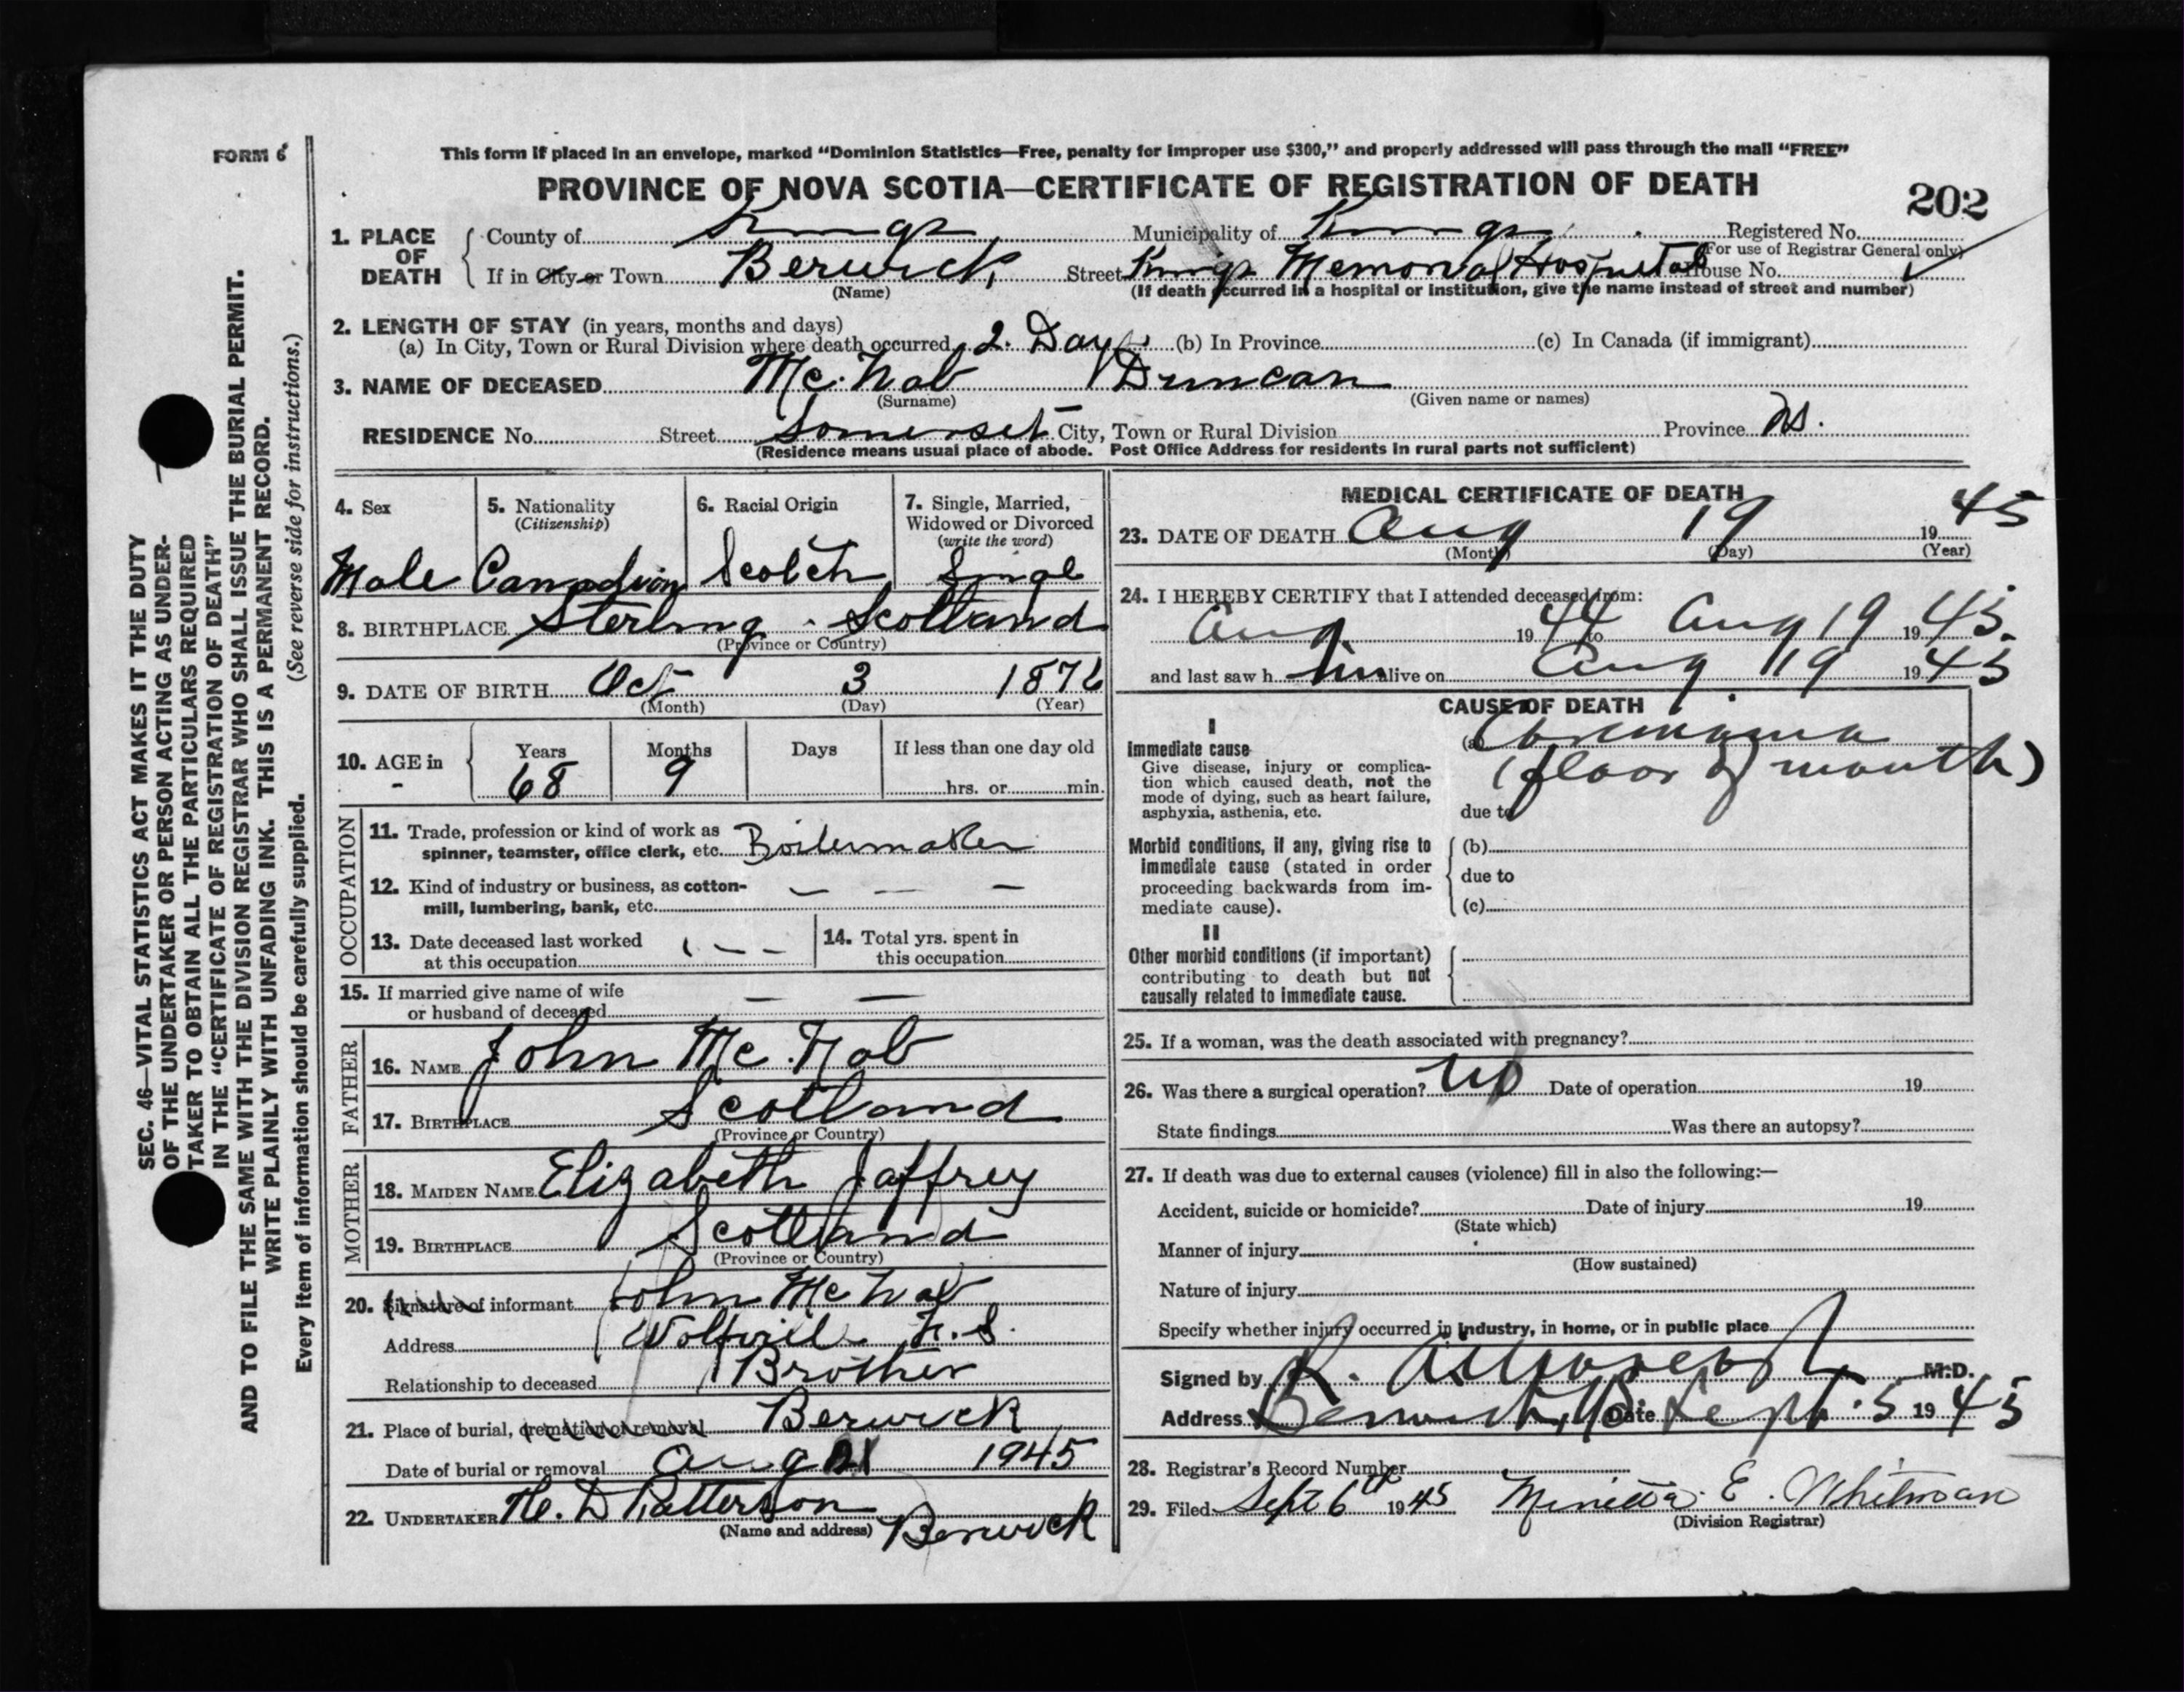 FORM 6
This form if placed in an envelope, marked “Dominion Statistics—Free, penalty for improper use $300,” and properly addressed will pass through the mail “FREE”
PROVINCE OF NOVA SCOTIA—CERTIFICATE OF REGISTRATION OF DEATH
202
1. PLACE OF DEATH
County of Kings Municipality of Kings Registered No.
(For use of Registrar General only)
If in City or Town Berwick, Street Kings Memorial Hospital House No.
(Name) (If death occurred in a hospital or institution, give the name instead of street and number)
2. LENGTH OF STAY (in years, months and days)
(a) In City, Town or Rural Division where death occurred 2. Days. (b) In Province (c) In Canada (if immigrant)
3. NAME OF DECEASED Mc.Nab Duncan
(Surname) (Given name or names)
RESIDENCE No. Street Somerset City, Town or Rural Division Province NS.
(Residence means usual place of abode. Post Office Address for residents in rural parts not sufficient)
4. Sex Male
5. Nationality (Citizenship) Canadian
6. Racial Origin Scotch
7. Single, Married, Widowed or Divorced (write the word) Singl
8. BIRTHPLACE Sterling - Scotland
(Province or Country)
9. DATE OF BIRTH Oct 3 1876
(Month) (Day) (Year)
10. AGE in Years 68 Months 9 Days If less than one day old
hrs. or min.
OCCUPATION
11. Trade, profession or kind of work as spinner, teamster, office clerk, etc. Boilermaker
12. Kind of industry or business, as cotton-mill, lumbering, bank, etc. — — —
13. Date deceased last worked at this occupation — —
14. Total yrs. spent in this occupation
15. If married give name of wife or husband of deceased — —
FATHER
16. NAME John Mc.Nab
17. BIRTHPLACE Scotland
(Province or Country)
MOTHER
18. MAIDEN NAME Elizabeth Jaffrey
19. BIRTHPLACE Scotland
(Province or Country)
20. Signature of informant John McNab
Address Wolfvile N.S.
Relationship to deceased Brother
21. Place of burial, cremation or removal Berwick
Date of burial or removal Aug 21 1945
22. UNDERTAKER H. D Patterson
(Name and address) Berwick
MEDICAL CERTIFICATE OF DEATH
23. DATE OF DEATH Aug 19 1945
(Month) (Day) (Year)
24. I HEREBY CERTIFY that I attended deceased from:
Aug 1944 to Aug 19 1945.
and last saw him alive on Aug 19 1945
CAUSE OF DEATH
I
Immediate cause
Give disease, injury or complication which caused death, not the mode of dying, such as heart failure, asphyxia, asthenia, etc.
(a)
(floor of mouth)
due to
Morbid conditions, if any, giving rise to immediate cause (stated in order proceeding backwards from immediate cause).
(b)
due to
(c)
II
Other morbid conditions (if important) contributing to death but not causally related to immediate cause.
25. If a woman, was the death associated with pregnancy?
26. Was there a surgical operation? No Date of operation 19
State findings Was there an autopsy?
27. If death was due to external causes (violence) fill in also the following:—
Accident, suicide or homicide? Date of injury 19
(State which)
Manner of injury
(How sustained)
Nature of injury
Specify whether injury occurred in industry, in home, or in public place
Signed by R. M.D.
Address Berwick, N.S. Date Sept. 5 1945
28. Registrar's Record Number
29. Filed Sept 6th 1945 E. Whitman
(Division Registrar)
SEC. 46—VITAL STATISTICS ACT MAKES IT THE DUTY
OF THE UNDERTAKER OR PERSON ACTING AS UNDER-
TAKER TO OBTAIN ALL THE PARTICULARS REQUIRED
IN THE “CERTIFICATE OF REGISTRATION OF DEATH”
AND TO FILE THE SAME WITH THE DIVISION REGISTRAR WHO SHALL ISSUE THE BURIAL PERMIT.
WRITE PLAINLY WITH UNFADING INK. THIS IS A PERMANENT RECORD.
Every item of information should be carefully supplied. (See reverse side for instructions.)